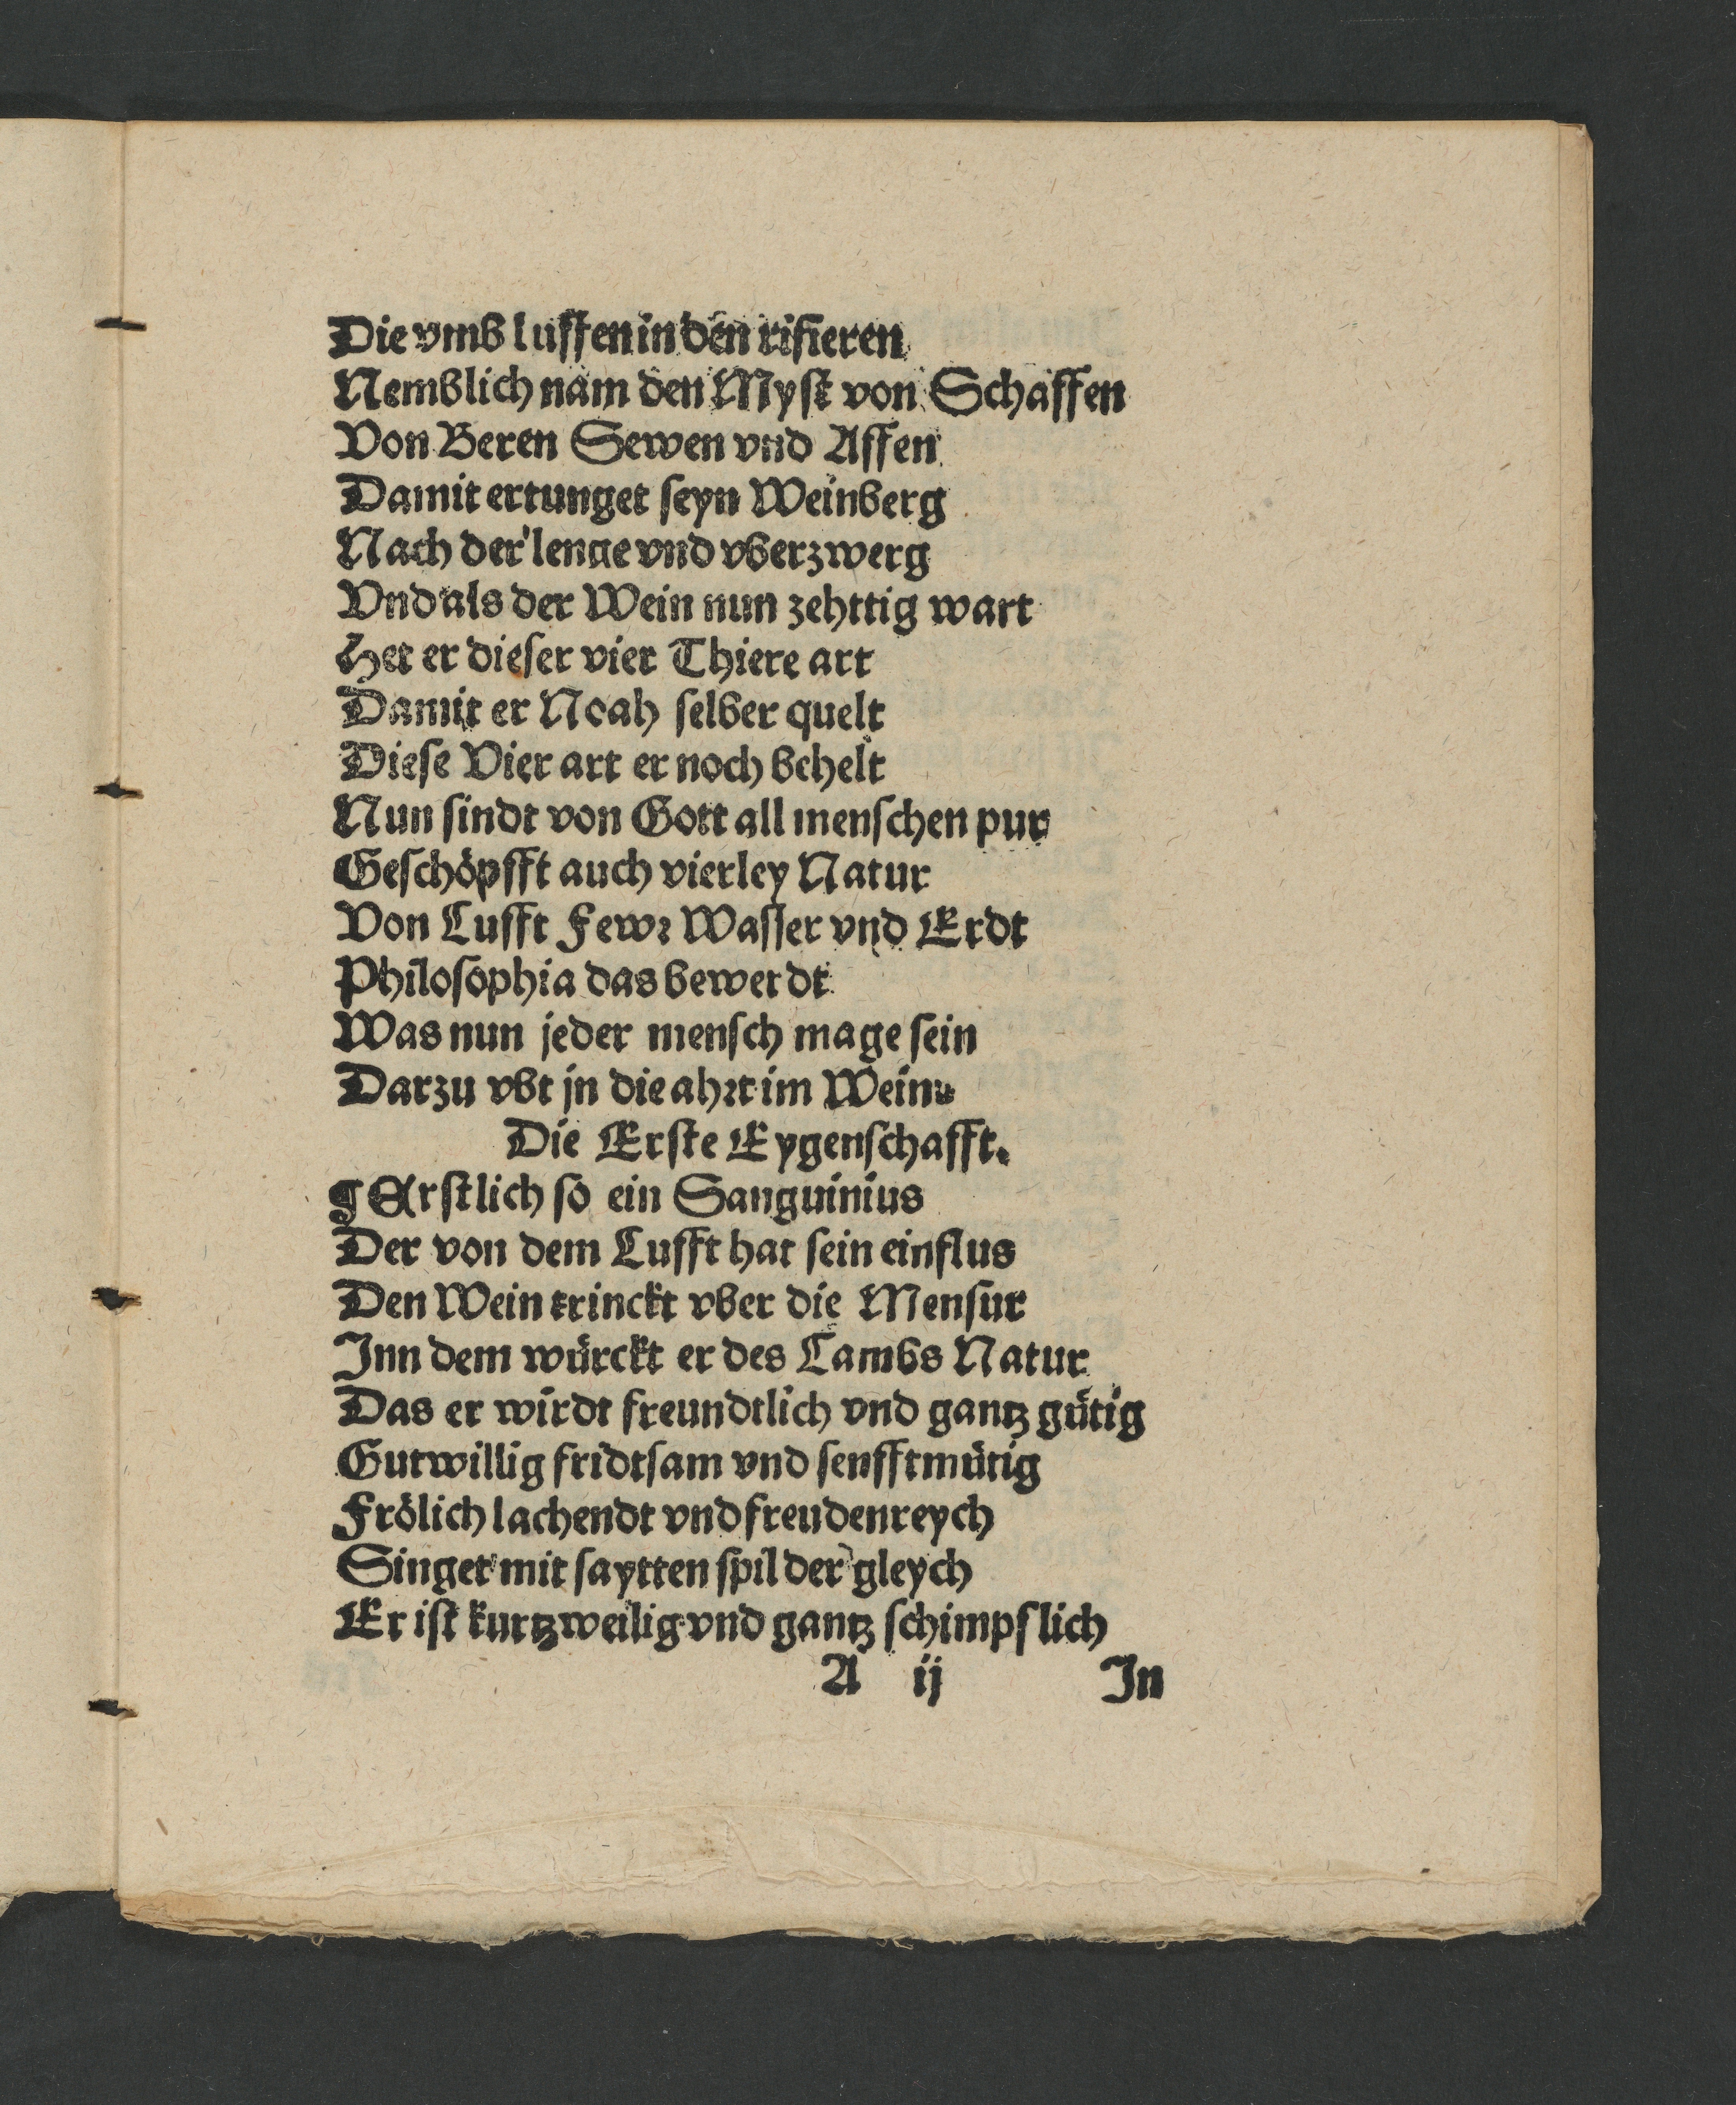 Die vmb luffen in den rifieren
Nemblich nam den Myst von Schaffen
Von Beren Sewen vnd Affen
Damit ertunget seyn Weinberg
Nach der lenge vnd vberzwerg
Vnd als der Wein nun zehttig wart
Het er dieser vier Thiere art
Damit er Noah selber quelt
Diese Vier art er noch behelt
Nun sindt von Gott all menschen pur
Geschöpfft auch vierley Natur
Von Lufft Fewr Wasser vnd Erdt
Philosophia das bewerdt
Was nun jeder mensch mage sein
Darzu vbt jn die ahrt im Wein
Die Erste Eygenschafft.
¶ Erstlich so ein Sanguinius
Der von dem Lufft hat sein einflus
Den Wein trinckt vber die Mensur
Inn dem würckt er des Lambs Natur
Das er wirdt freundtlich vnd gantz gütig
Gutwillig fridtsam vnd senfftmütig
Frölich lachendt vnd freudenreych
Singet mit saytten spil der gleych
Er ist kurtzweilig vnd gantz schimpflich
A ij In